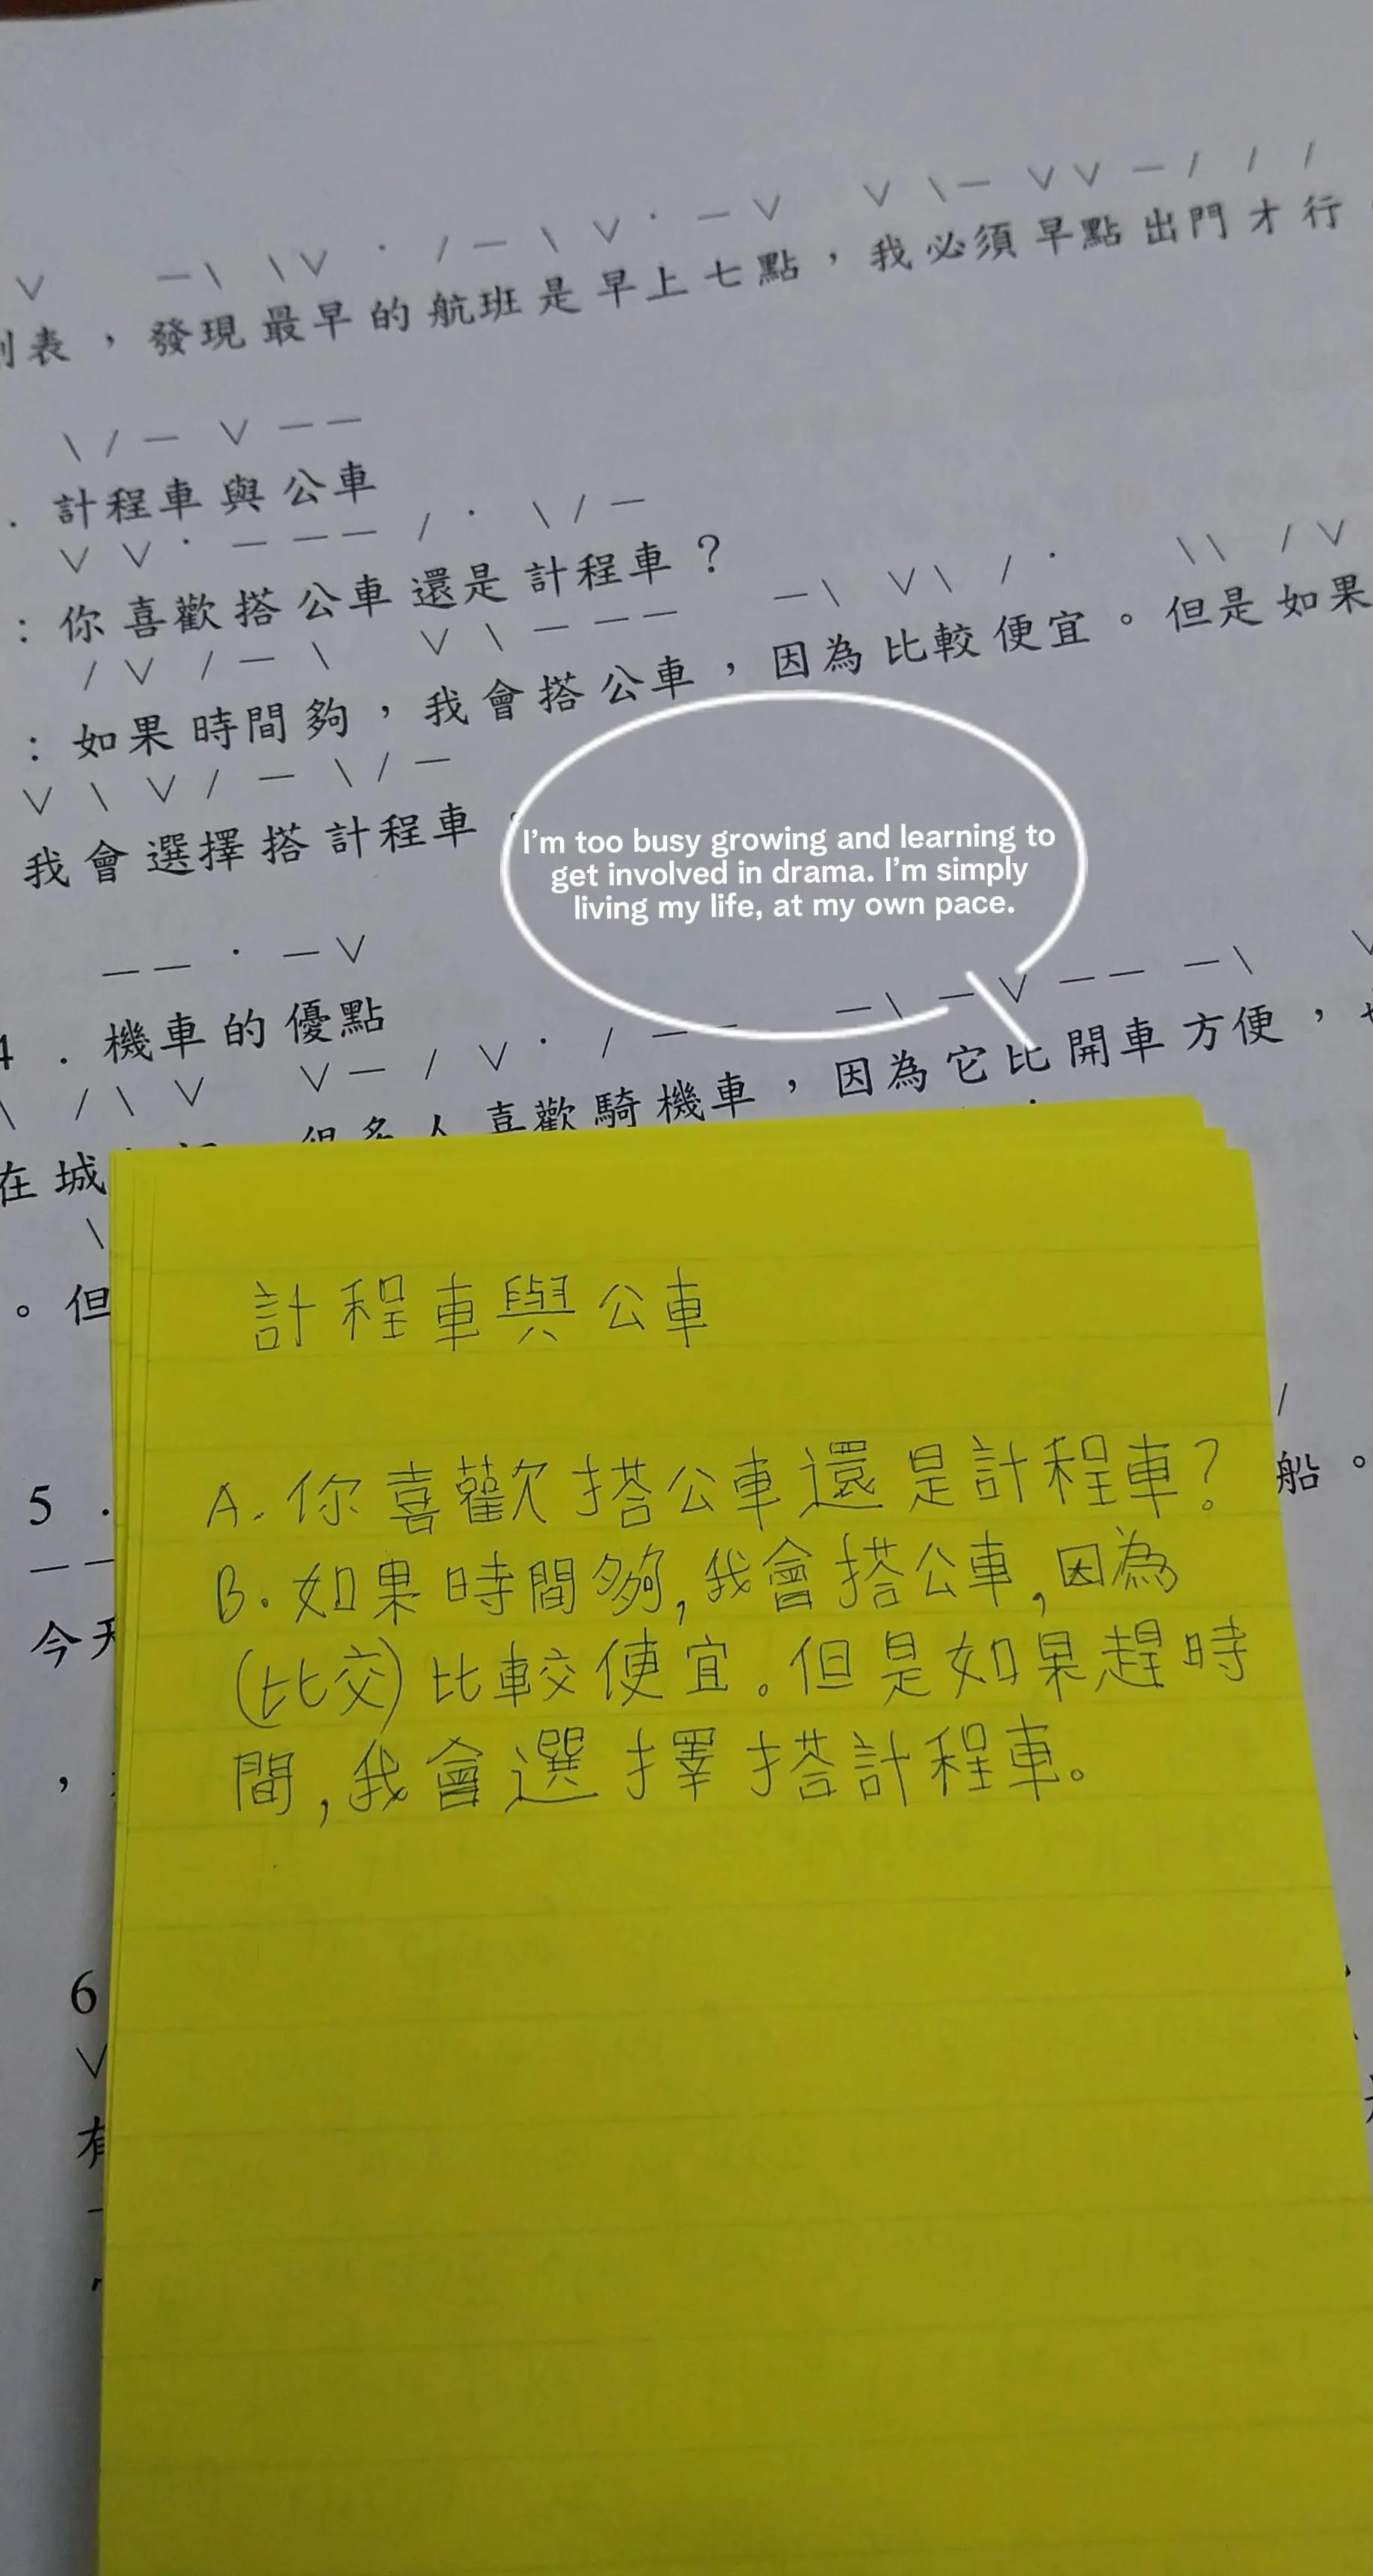 表，發現最早的航班是早上七點，我必須早點出門才行
．計程車與公車
：你喜歡搭公車還是計程車？
：如果時間夠，我會搭公車，因為比較便宜。但是如果
我會選擇搭計程車。
I'm too busy growing and learning to
get involved in drama. I'm simply
living my life, at my own pace.
4．機車的優點
在城 很多人喜歡騎機車，因為它比開車方便，
。但
計程車與公車
A. 你喜歡搭公車還是計程車?
B. 如果時間夠,我會搭公車,因為
(比交)比較便宜。但是如果趕時
間,我會選擇搭計程車。
5．
船。
今天
，
6
有